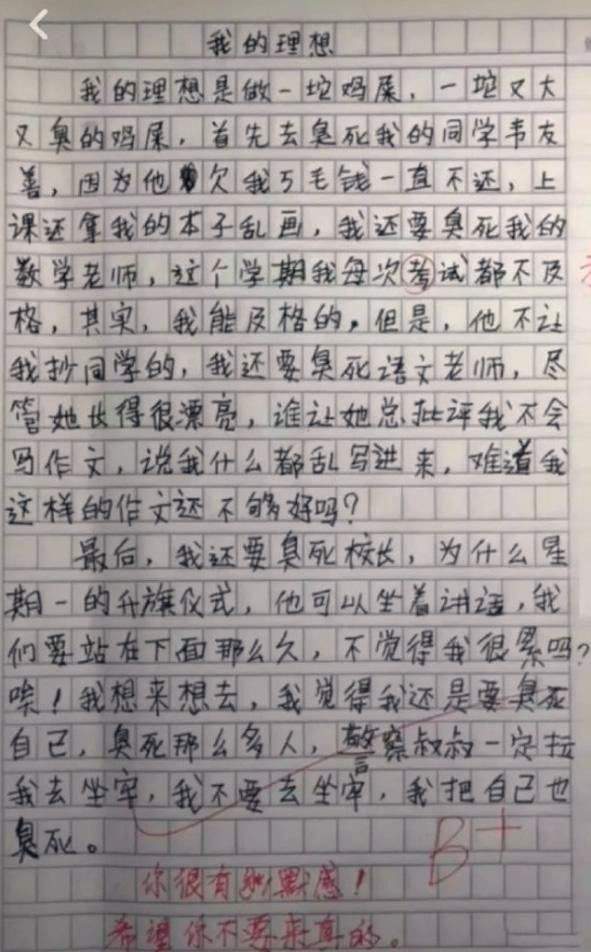 我的理想
我的理想是做一坨鸡屎，一坨又大
又臭的鸡屎，首先去臭死我的同学韦友
善，因为他欠我5毛钱一直不还，上
课还拿我的本子乱画，我还要臭死我的
数学老师，这个学期我每次考试都不及
格，其实，我能及格的，但是，他不让
我抄同学的，我还要臭死语文老师，尽
管她长得很漂亮，谁让她总批评我不会
写作文，说我什么都乱写进来，难道我
这样的作文还不够好吗？
最后，我还要臭死校长，为什么星
期一的升旗仪式，他可以坐着讲话，我
们要站在下面那么久，不觉得我很累吗？
唉！我想来想去，我觉得我还是要臭死
自己，臭死那么多人，警察叔叔一定抓
我去坐牢，我不要去坐牢，我把自己也
臭死。
B+
你很有幽默感！
希望你不要来真的。